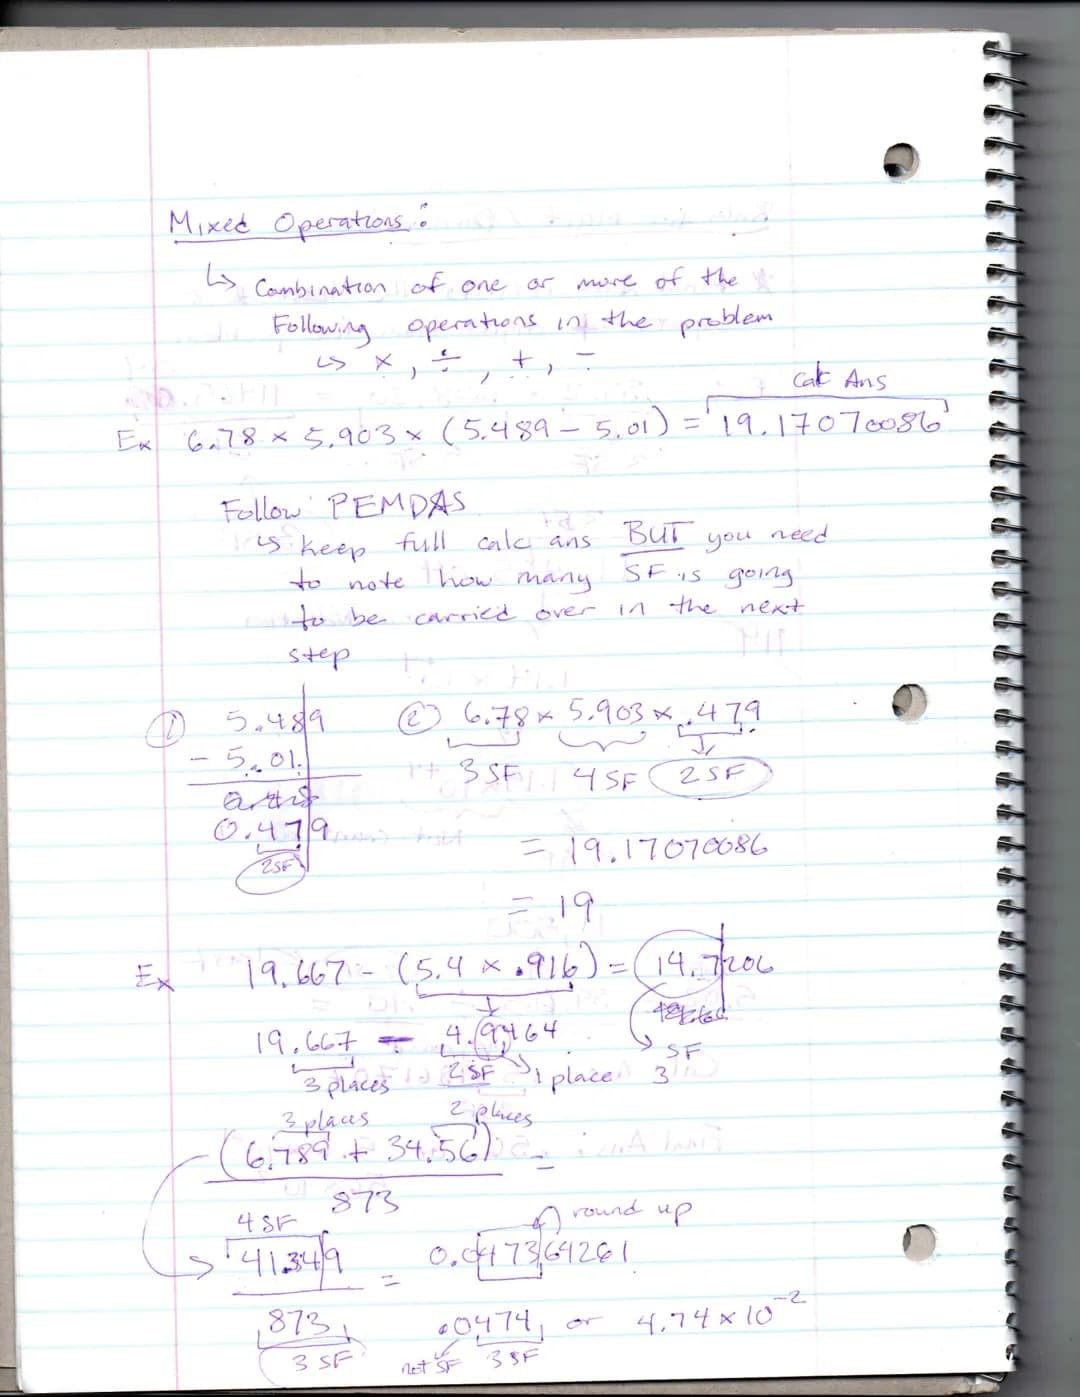 Mixed Operations:
↳ Combination of one or more of the
Following operations in the problem
↳ ×, ÷, +, -
Calc Ans
Ex 6.78 × 5.903 × (5.489 - 5.01) = 19.17070086
Follow PEMDAS
↳ keep full calc ans BUT you need
to note how many SF is going
to be carried over in the next
step
① 5.489
- 5.01
0.479
2SF
② 6.78 × 5.903 × .479
3 SF 4 SF 2 SF
= 19.17070086
= 19
Ex 19.667 - (5.4 × .916) = 14.7206
19.667 - 4.9464
3 places 2 SF 1 place
SF
3
3 places 2 places
(6.789 + 34.56) =
873
4 SF
41.349 = 0.047364261
round up
873
3 SF
.0474 or 4.74 × 10⁻²
not SF 3 SF